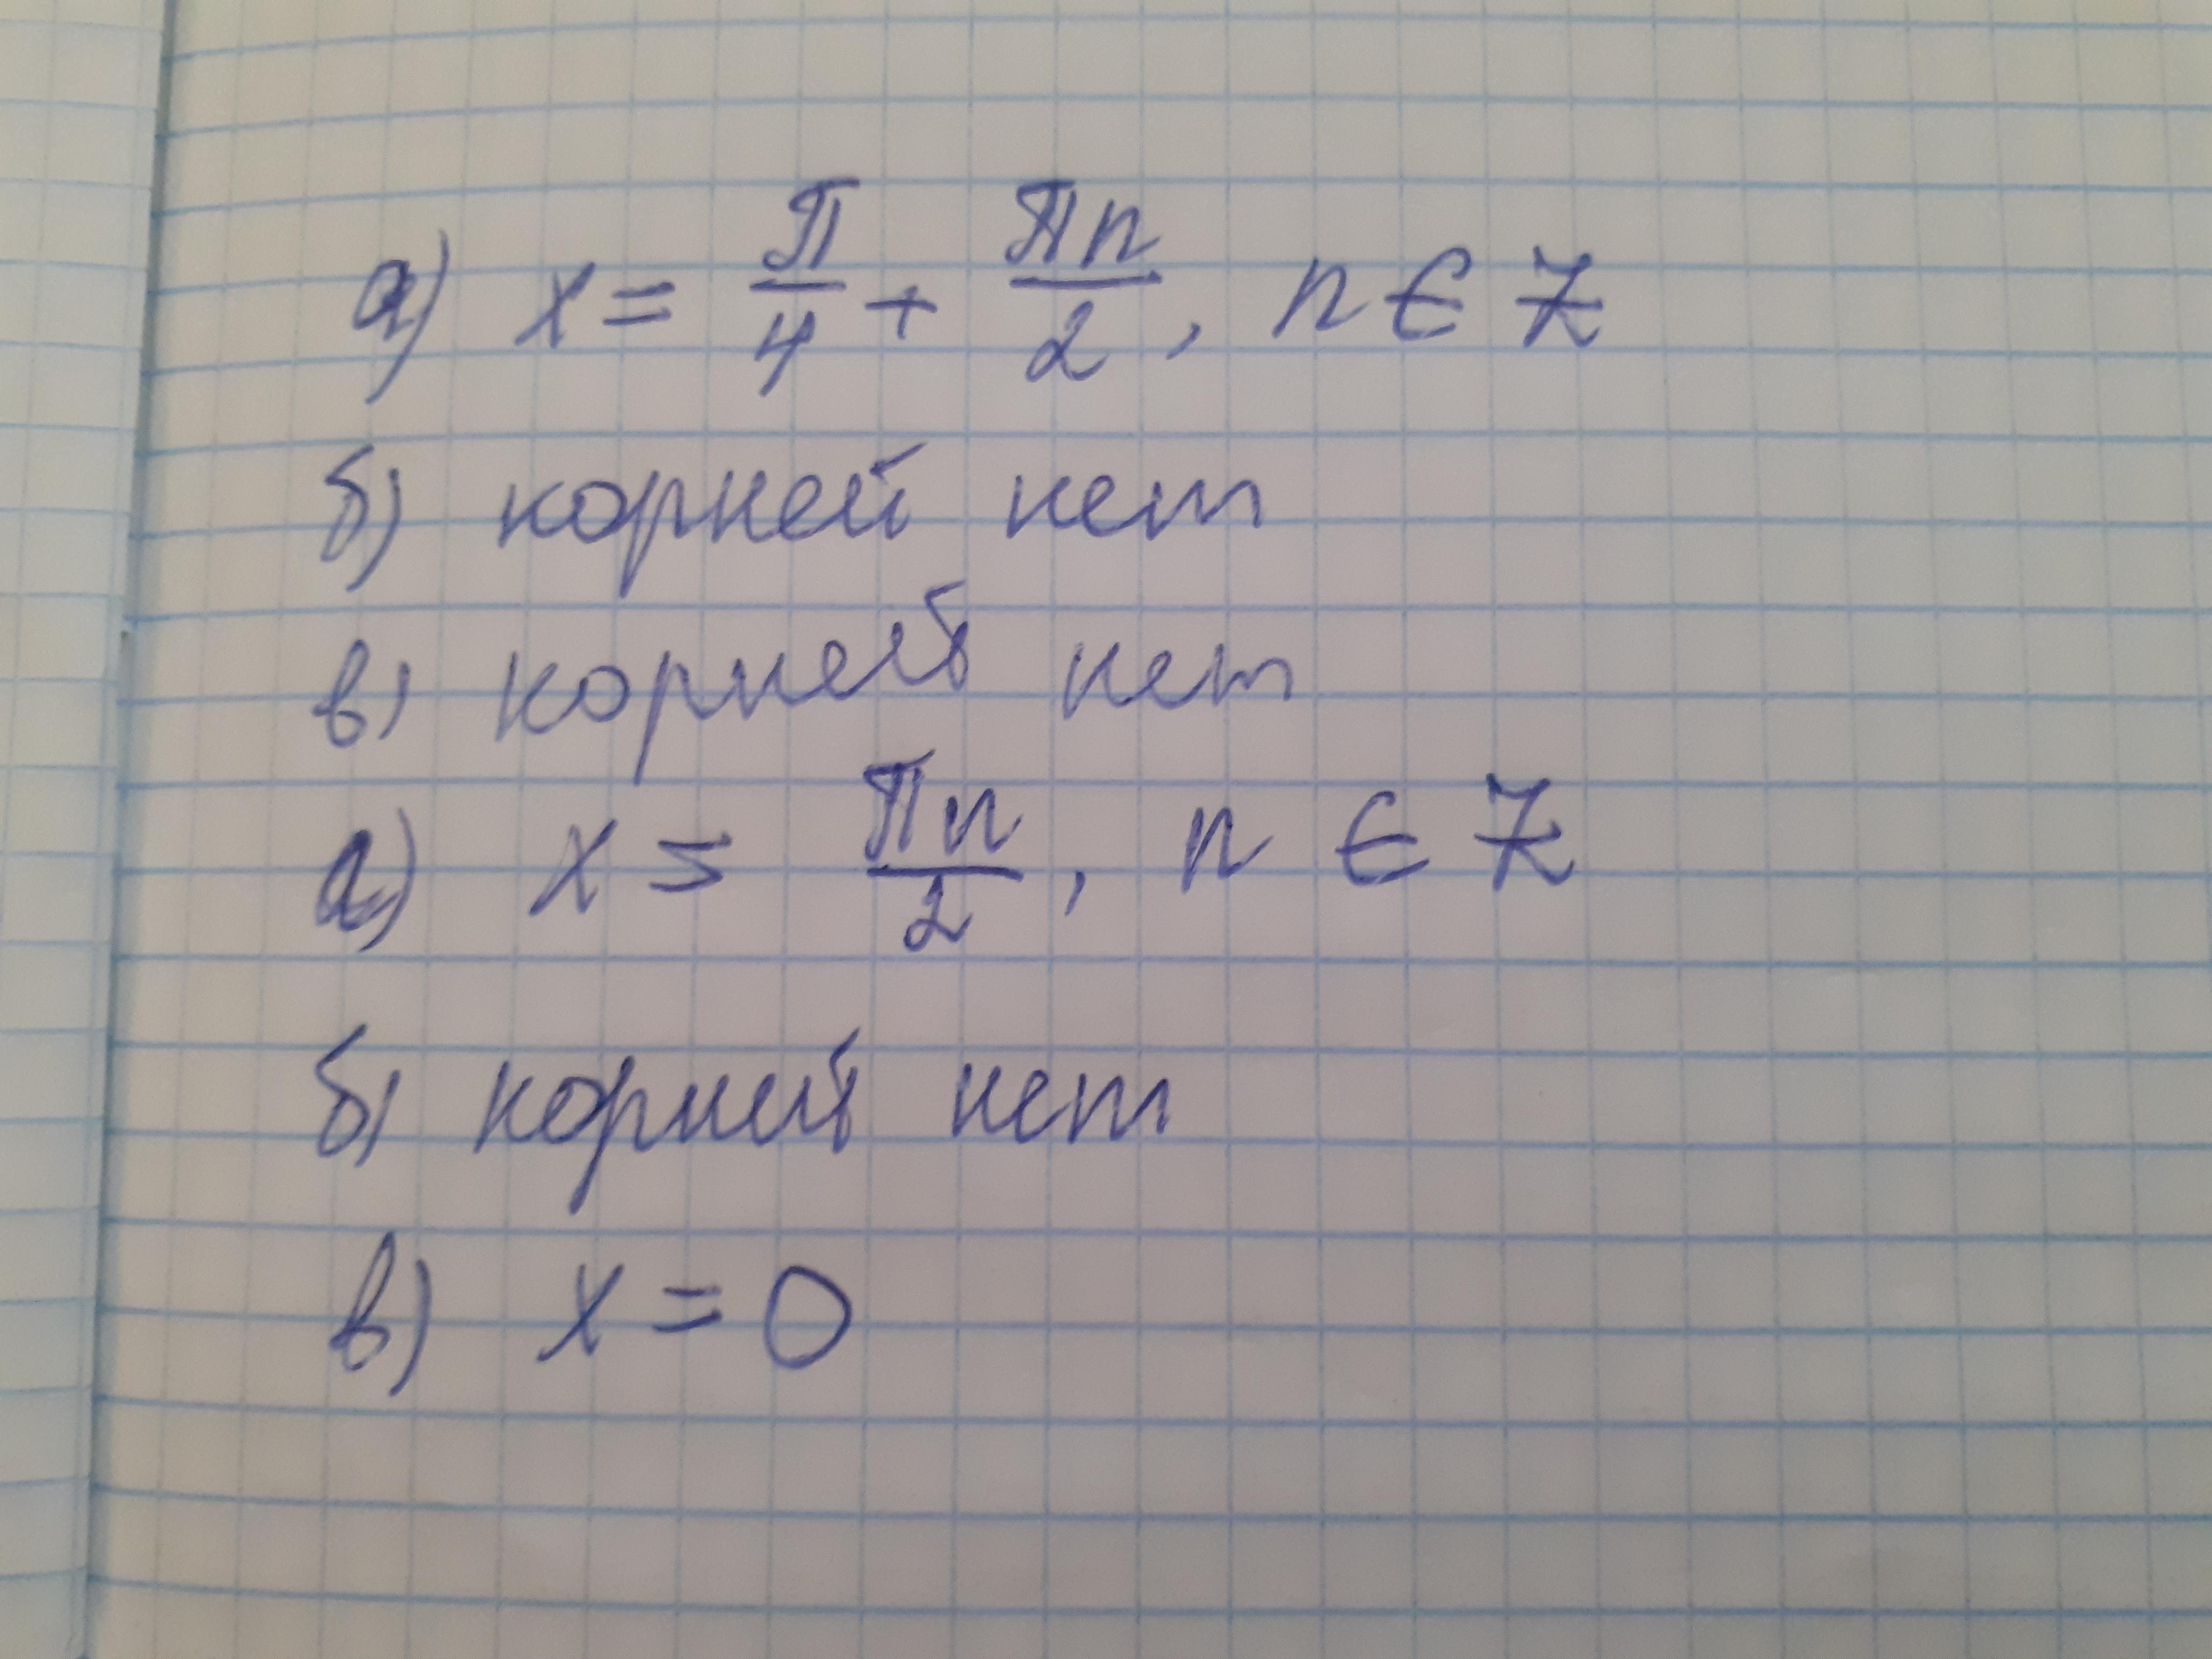 а) x = π/4 + πn/2, n ∈ Z
б) корней нет
в) корней нет
а) x = πn/2, n ∈ Z
б) корней нет
в) x = 0